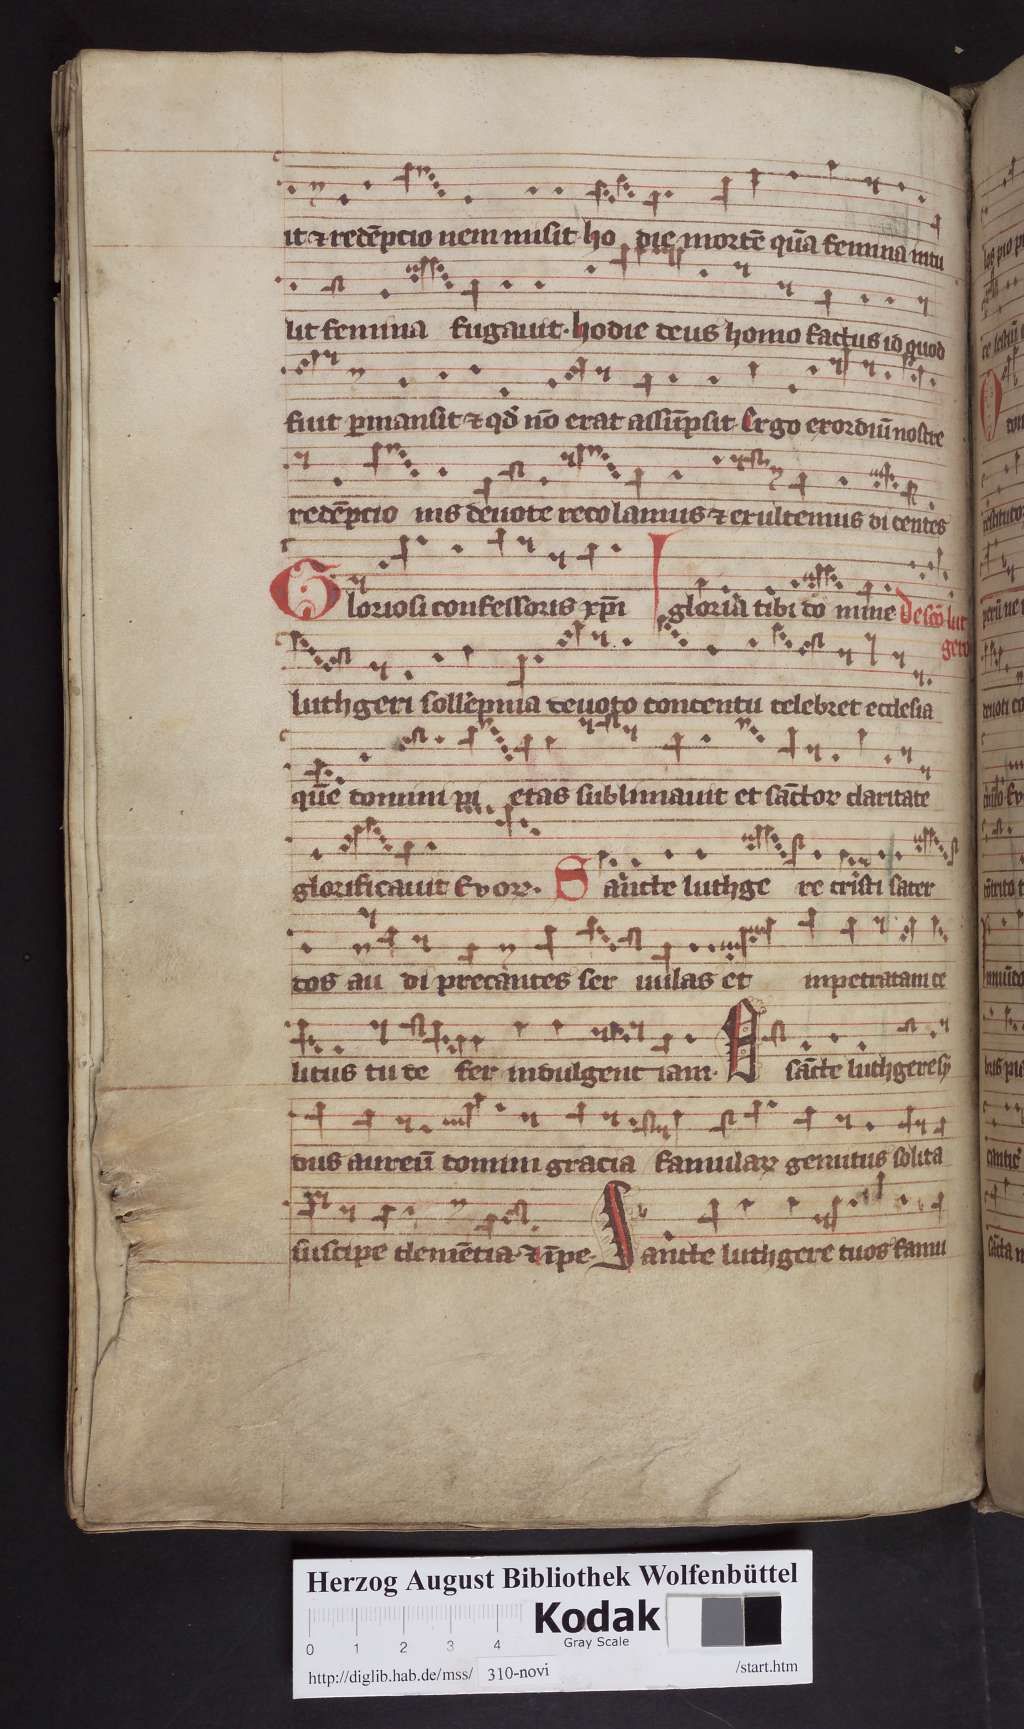 it ⁊ redēpcio nem misit ho die mortē quā femina intu
lit femina fugauit. hodie deus homo factus id quod
fuit ꝑmansit ⁊ qd̄ nō erat assūpsit Ergo exordiū nostre
redēpcio nis deuote recolamus ⁊ exultemus di centes
Gloriosi confessoris xp̄i gloria tibi do mine De scō lut
gero
luthgeri sollēpnia deuoto concentu celebret ecclesia
quē domini pi etas sublimauit et sāctoꝝ claritate
glorificauit Evoꝝ. Sancte luthge re cristi sacer
dos au di precantes ser uulas et inpetratam ce
litus tu de fer indulgent iam. A sācte luthgere sy
dus aureū domini gracia famulaꝝ gemitus solita
suscipe clemēcia ⁊ īpe. Sancte luthgere tuos famu
Herzog August Bibliothek Wolfenbüttel
Kodak
Gray Scale
0 1 2 3 4
http://diglib.hab.de/mss/ 310-novi /start.htm